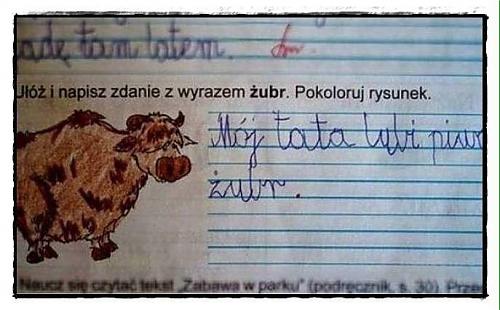 adę tam latem.
Ułóż i napisz zdanie z wyrazem żubr. Pokoloruj rysunek.
Mój tata lubi piw
żubr.
Naucz się czytać tekst „Zabawa w parku” (podręcznik, s. 30). Prze